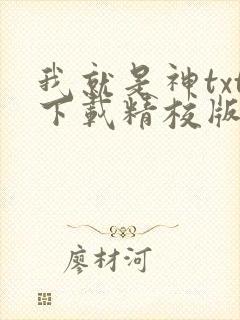 我就是神txt
下载精校版
廖材河